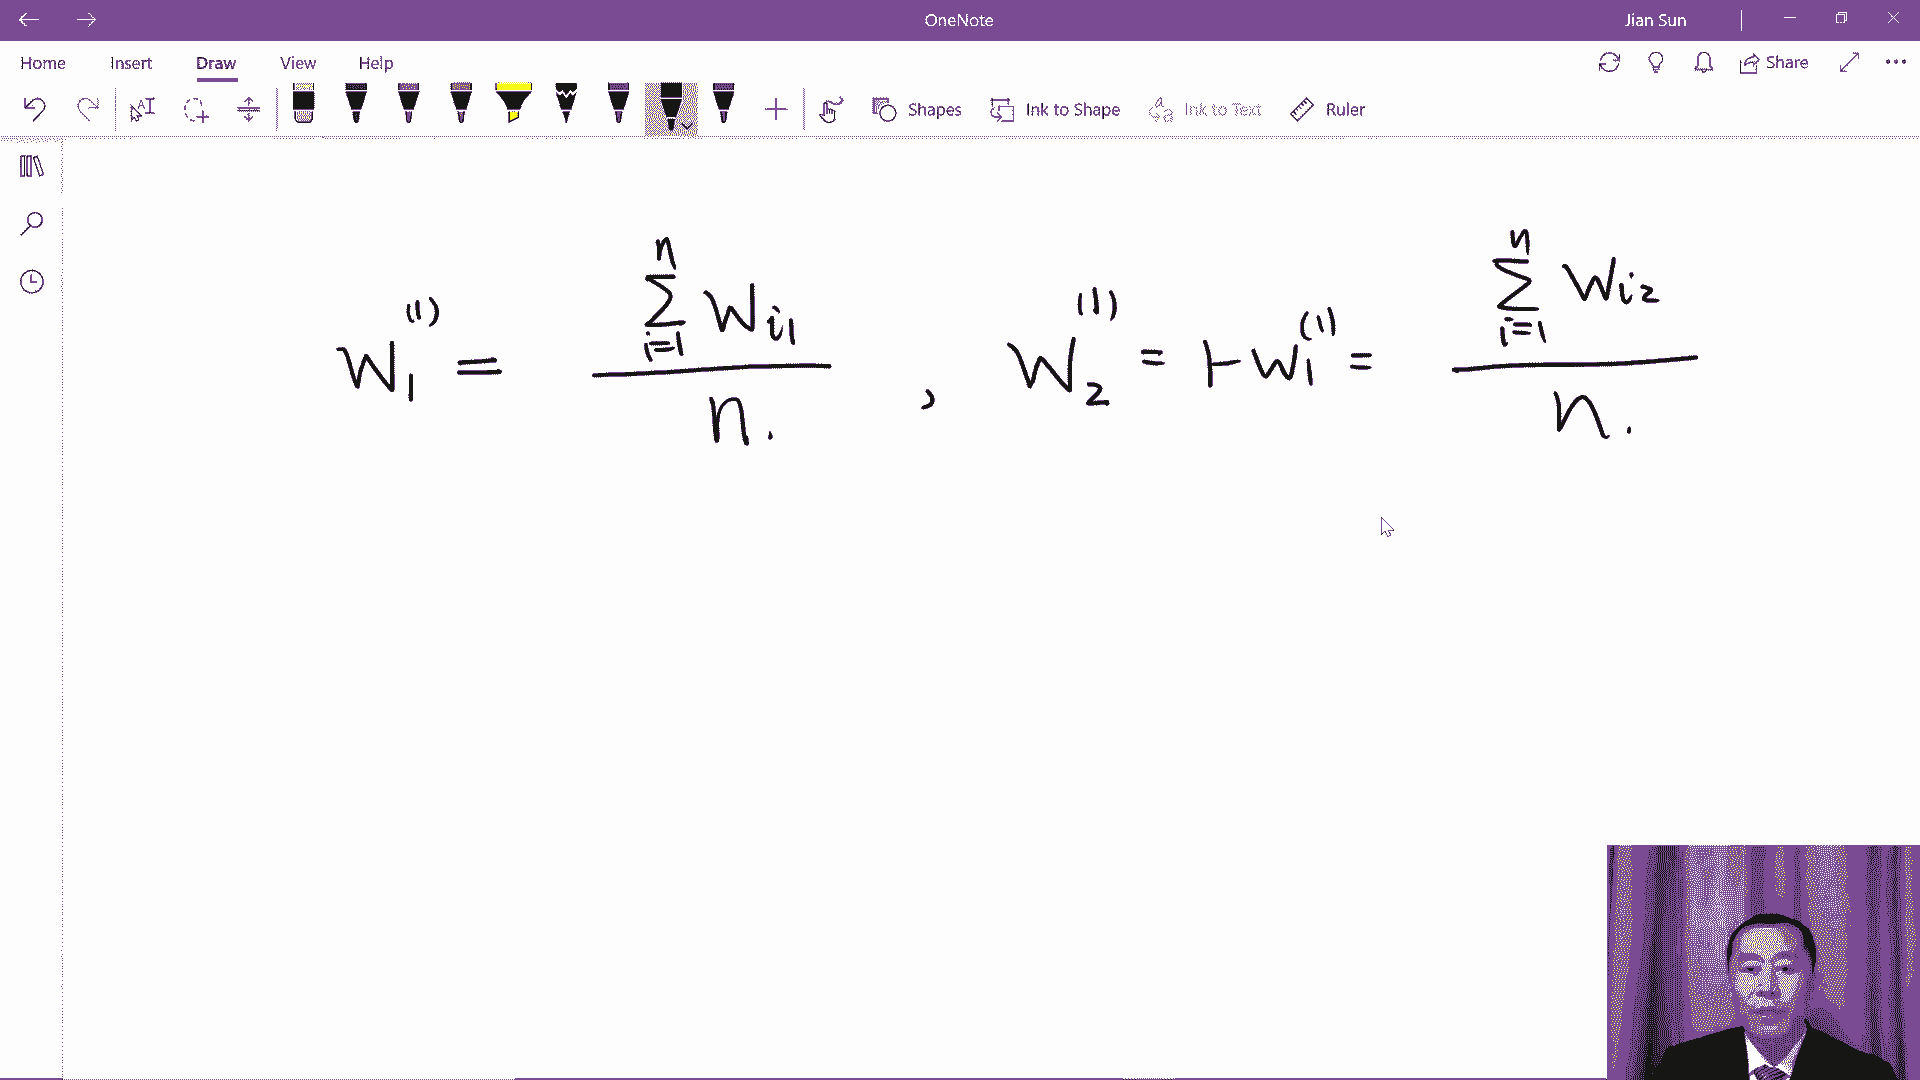 OneNote
Jian Sun
Home Insert Draw View Help
Share
Shapes Ink to Shape Ink to Text Ruler
W₁⁽¹⁾ = ∑ᵢ₌₁ⁿ Wᵢ₁ / n. , W₂⁽¹⁾ = 1-W₁⁽¹⁾ = ∑ᵢ₌₁ⁿ Wᵢ₂ / n.